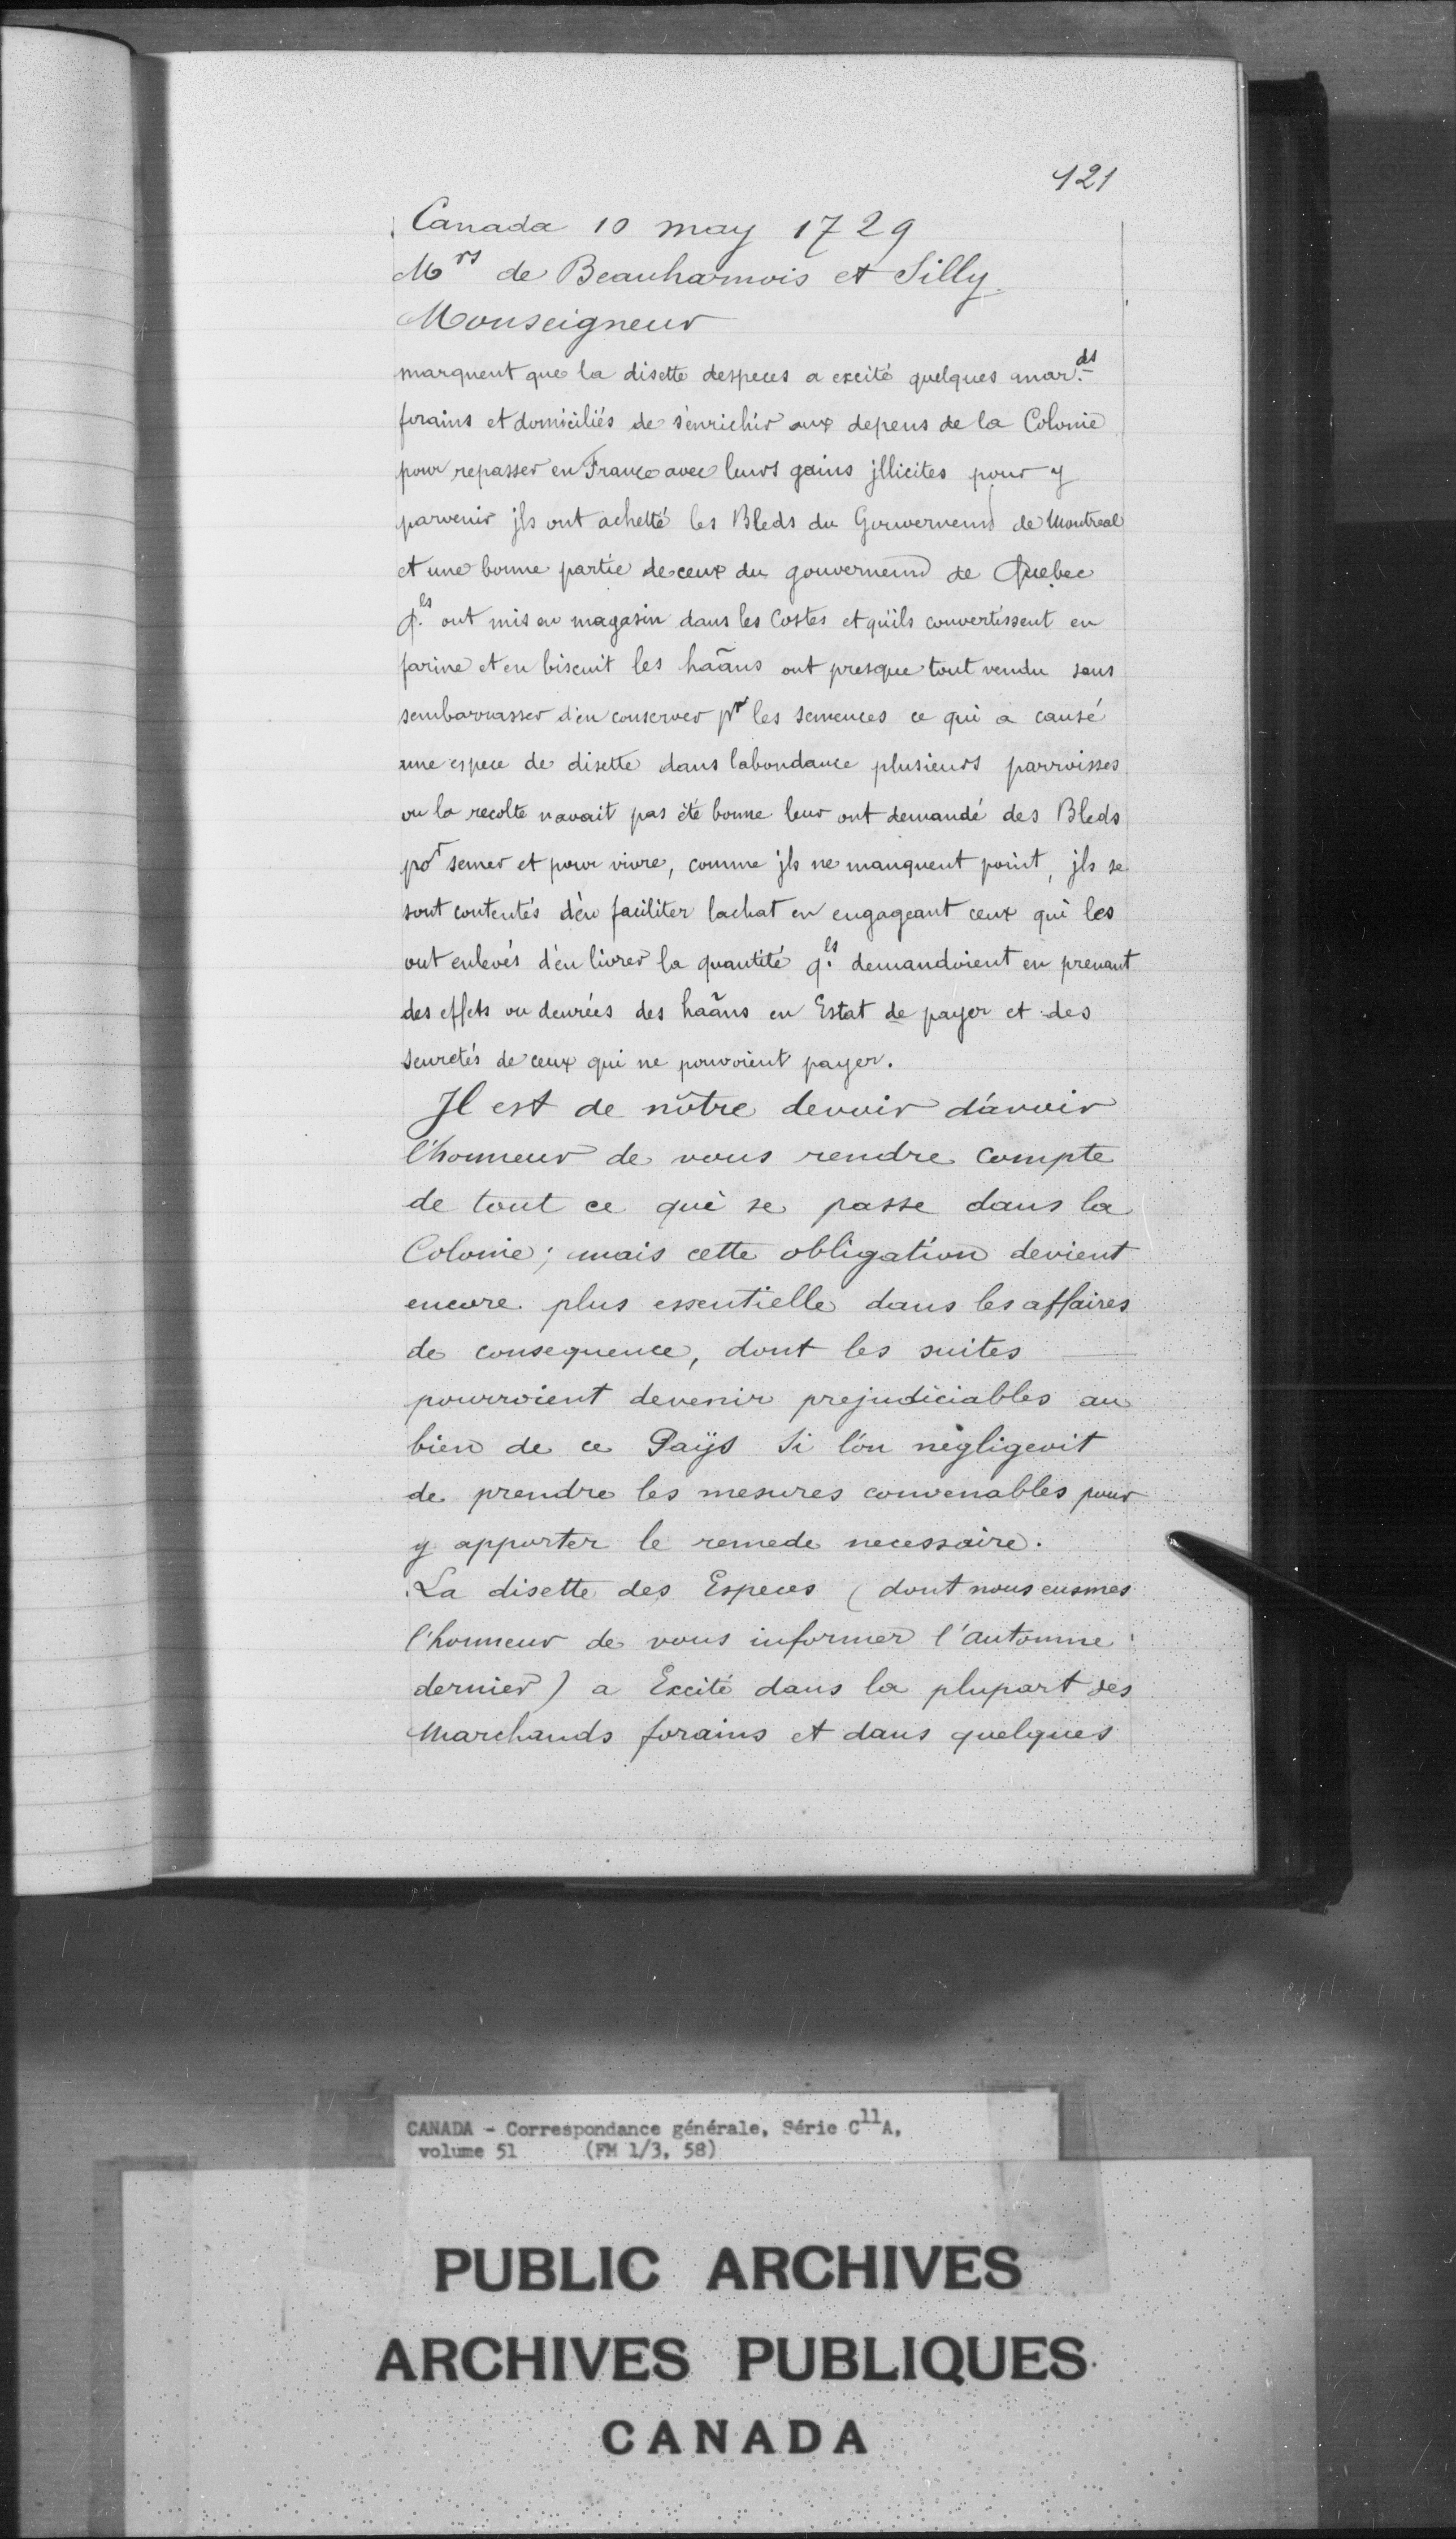 121
Canada 10 may 1729
Mrs de Beauharnois et Silly.
Monseigneur
marquent que la disette despeces a excité quelques mar.ds
forains et domiciliés de s'enrichir aux depens de la Colonie
pour repasser en France avec leurs gains jllicites pour y
parvenir jls ont achetté les Bleds du Gouvernemt de Montreal
et une bonne partie de ceux du gouvernemt de Quebec
q.ls ont mis en magasin dans les Costes et qu'ils convertissent en
farine et en biscuit les haãns ont presque tout vendu sans
sembarrasser d'en conserver pr les semences ce qui a causé
une espece de disette dans labondance plusieurs parroisses
ou la recolte navait pas été bonne leur ont demandé des Bleds
por semer et pour vivre, comme jls ne manquent point, jls se
sont contentés d'en faciliter lachat en engageant ceux qui les
ont enlevés d'en livrer la quantité q.ls demandoient en prenant
des effets ou denrées des haãns en Estat de payer et des
seuretés de ceux qui ne pouvoient payer.
Jl est de nôtre devoir d'avoir
l'honneur de vous rendre compte
de tout ce qui se passe dans la
Colonie; mais cette obligation devient
encore plus essentielle dans les affaires
de consequence, dont les suites —
pourroient devenir prejudiciables au
bien de ce Païs Si l'on négligeoit
de prendre les mesures convenables pour
y apporter le remede necessaire.
La disette des Especes (dont nous eusmes
l'honneur de vous informer l'automne
dernier) a Excité dans la plupart des
Marchands forains et dans quelques
CANADA - Correspondance générale, Série C11A,
volume 51 (FM 1/3, 58)
PUBLIC ARCHIVES
ARCHIVES PUBLIQUES
CANADA